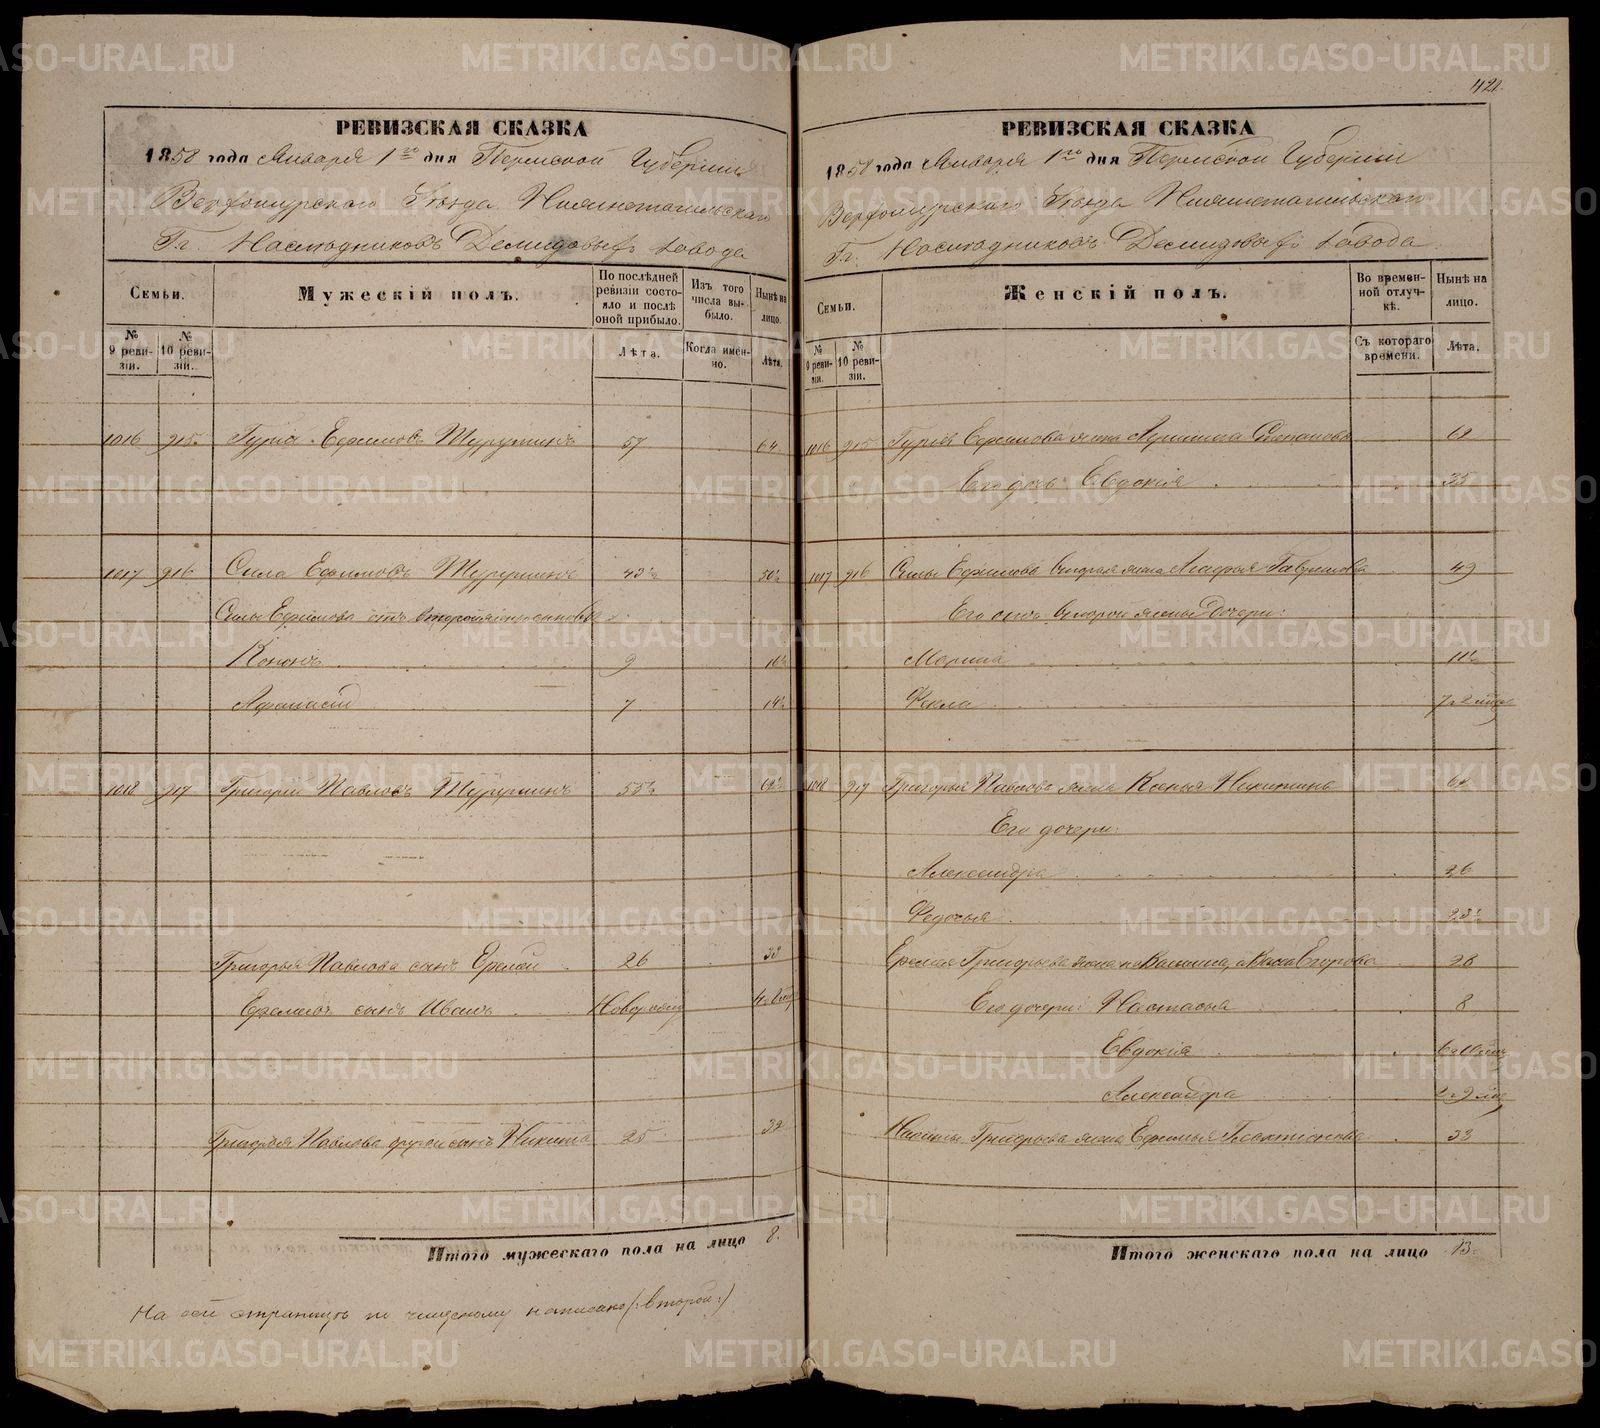 421.
РЕВИЗСКАЯ СКАЗКА
1858 года Января 1го дня Пермской Губернии
Верхотурского Уѣзда Нижнетагильскаго
Гг. Наслѣдниковъ Демидовыхъ завода
Семьи.
Мужескій полъ.
По послѣдней ревизіи состояло и послѣ оной прибыло.
Изъ того числа выбыло.
Нынѣ на лицо.
№ 9 ревизіи.
№ 10 ревизіи.
Лѣта.
Когда именно.
Лѣта.
1016 915 Гурій Ефимовъ 57 64
1017 916 Сила Ефимовъ 43½ 50½
Силы Ефимова отъ второй жены сыновья
Кононъ 9 16½
Афанасій 7 14½
1018 917 Григорій Павловъ 55½ 62½
Григорья Павлова сынъ Еремей 26 33
Еремея сынъ Иванъ
Григорья Павлова другой сынъ Никита 25 32
Итого мужескаго пола на лицо 8.
На сей страницѣ по чищеному написано (: второй :)
РЕВИЗСКАЯ СКАЗКА
1858 года Января 1го дня Пермской Губерніи
Верхотурскаго Уѣзда Нижнетагильскаго
Гг. Наслѣдниковъ Демидовыхъ завода
Семьи.
Женскій полъ.
Во временной отлучкѣ.
Нынѣ на лицо.
№ 9 ревизіи.
№ 10 ревизіи.
Съ котораго времени.
Лѣта.
1016 915 Гурья Ефимова жена Степанова
Его дочь Евдокія 35
1017 916 Силы Ефимова вторая жена Гаврилова 49
Его отъ второй жены дочери:
Марина 11½
Фекла
1018 917 Григорья Павлова жена Ксенья Никитина
Его дочери:
Александра 26
Федосья
Еремея Григорьева жена не Василиса, а Васса Егорова 28
Его дочери: Настасья 8
Евдокія
Александра
Никиты Григорьева жена Ефимья 33
Итого женскаго пола на лицо 13.
METRIKI.GASO-URAL.RU